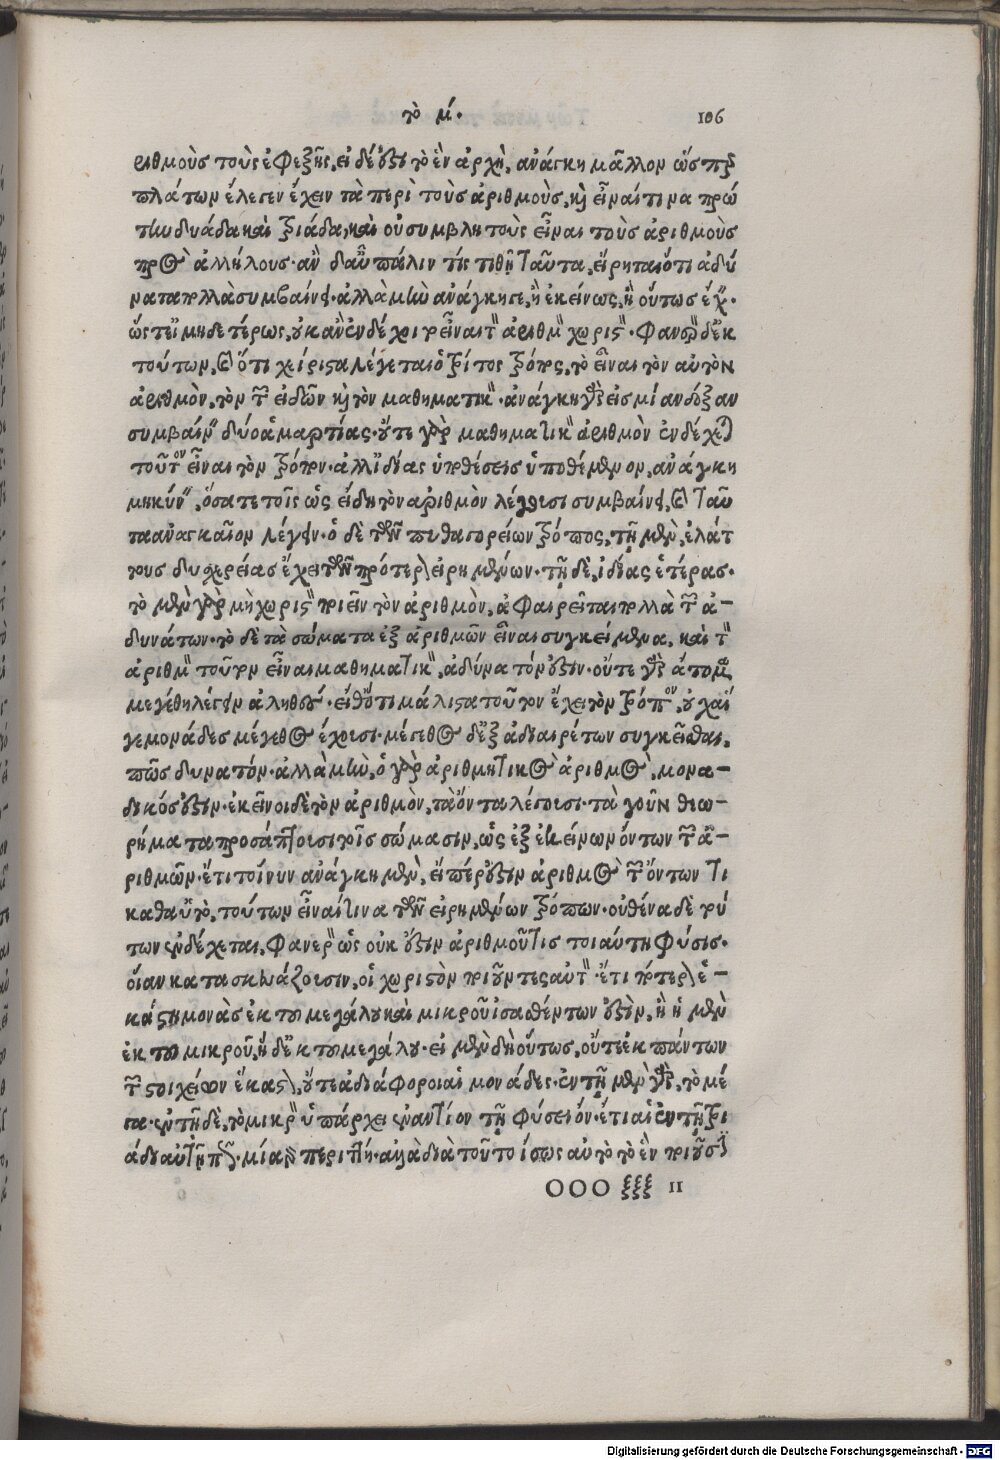 τὸ μ´. 106
ριθμοὺς τοὺς ἐφεξῆς. εἰ δέ ἐστι τὸ ἓν ἀρχὴ, ἀνάγκη μᾶλλον ὥσπερ
πλάτων ἔλεγεν ἔχειν τὰ περὶ τοὺς ἀριθμοὺς, καὶ εἶναί τινα πρώ
την δυάδα καὶ τριάδα, καὶ οὐ συμβλητοὺς εἶναι τοὺς ἀριθμοὺς
πρὸς ἀλλήλους. ἂν δ' αὖ πάλιν τίς τιθῇ ταῦτα, εἴρηται ὅτι ἀδύ
νατα πολλὰ συμβαίνει. ἀλλὰ μὴν ἀνάγκη γε, ἢ ἐκείνως, ἢ οὕτως ἔχειν.
ὥστ' εἰ μηδετέρως, οὐκ ἂν ἐνδέχοιτο εἶναι τὸν ἀριθμὸν χωριστόν. φανερὸν δ' ἐκ
τούτων, καὶ ὅτι χείριστα λέγεται ὁ τρίτος τρόπος, τὸ εἶναι τὸν αὐτὸν
ἀριθμὸν, τὸν τῶν εἰδῶν καὶ τὸν μαθηματικόν. ἀνάγκη γὰρ εἰς μίαν δόξαν
συμβαίνειν δύο ἁμαρτίας. οὔτε γὰρ μαθηματικὸν ἀριθμὸν ἐνδέχεται
τοῦτον εἶναι τὸν τρόπον. ἀλλ' ἰδίας ὑποθέσεις ὑποθέμενον, ἀνάγκη
μηκύνειν, ὅσα τε τοῖς ὡς εἴδη τὸν ἀριθμὸν λέγουσι συμβαίνει, καὶ ταῦ
τα ἀναγκαῖον λέγειν. ὁ δὲ τῶν πυθαγορείων τρόπος, τῇ μὲν, ἐλάτ
τους δυχερείας ἔχει τῶν πρότερον εἰρημένων. τῇ δὲ, ἰδίας ἑτέρας.
τὸ μὲν γὰρ μὴ χωριστὸν ποιεῖν τὸν ἀριθμὸν, ἀφαιρεῖται πολλὰ τῶν ἀ-
δυνάτων. τὸ δὲ τὰ σώματα ἐξ ἀριθμῶν εἶναι συγκείμενα, καὶ τὸν
ἀριθμὸν τοῦτον εἶναι μαθηματικὸν, ἀδύνατόν ἐστιν. οὔτε γὰρ ἄτομα
μεγέθη λέγειν ἀληθές. εἴθ' ὅτι μάλιστα τοῦτον ἔχει τὸν τρόπον, οὐχ αἵ
γε μονάδες μέγεθος ἔχουσι. μέγεθος δ' ἐξ ἀδιαιρέτων συγκεῖσθαι,
πῶς δυνατόν. ἀλλὰ μὴν, ὁ γὰρ ἀριθμητικὸς ἀριθμὸς, μονα-
δικός ἐστιν. ἐκεῖνοι δὲ τὸν ἀριθμὸν, τὰ ὄντα λέγουσι. τὰ γοῦν θεω-
ρήματα προσάπτουσι τοῖς σώμασιν, ὡς ἐξ ἐκείνων ὄντων τῶν ἀ-
ριθμῶν. ἔτι τοίνυν ἀνάγκη μὲν, εἴπέρ ἐστιν ἀριθμὸς τῶν ὄντων τι
καθ' αὑτὸ, τούτων εἶναί τινα τῶν εἰρημένων τρόπων. οὐθένα δὲ τού
των ἐνδέχεται, φανερὸν ὡς οὐκ ἔστιν ἀριθμοῦ τις τοιαύτη φύσις.
οἵαν κατασκευάζουσιν, οἱ χωριστὸν ποιοῦντες αὐτόν. ἔτι πότερον ἑ-
κάστη μονὰς ἐκ τοῦ μεγάλου καὶ μικροῦ ἰσασθέντων ἐστὶν, ἢ ἡ μὲν
ἐκ τοῦ μικροῦ, ἡ δ' ἐκ τοῦ μεγάλου. εἰ μὲν δὴ οὕτως, οὔτε ἐκ πάντων
τῶν στοιχείων ἕκαστον, οὔτε ἀδιάφοροι αἱ μονάδες. ἐν τῇ μὲν γὰρ, τὸ μέ
γα. ἐν τῇ δὲ, τὸ μικρὸν ὑπάρχει ἐναντίον τῇ φύσει ὄν. ἔτι αἱ ἐν τῇ τρι
άδι αὐτῇ πῶς. μία γὰρ περιττή. ἀλλὰ διὰ τοῦτο ἴσως αὐτὸ τὸ ἓν ποιοῦσιν
OOO ξξξ 11
Digitalisierung gefördert durch die Deutsche Forschungsgemeinschaft - DFG